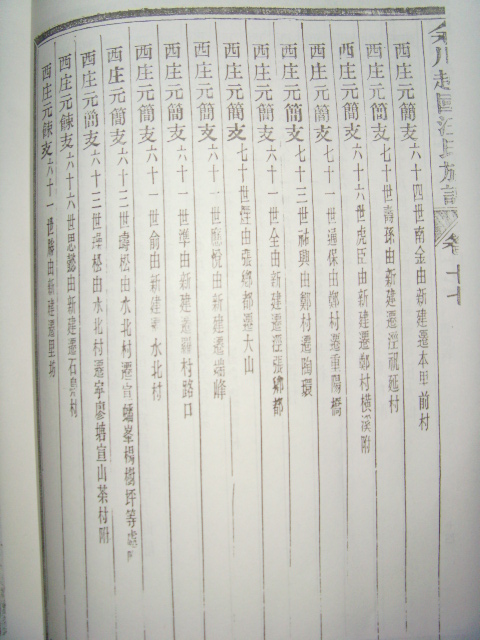 越國汪氏族譜
卷十七
西庄元簡支六十四世南金由新建遷本里前村
西庄元簡支七十世壽孫由新建遷涇祝延村
西庄元簡支六十六世虎臣由新建遷鄭村橫溪附
西庄元簡支六十一世通保由鄭村遷重陽橋
西庄元簡支七十三世社興由鄭村遷陶環
西庄元簡支六十一世全由新建遷涇張鄉都
西庄元簡支七十世 由張鄉都遷大山
西庄元簡支六十一世應悅由新建遷 峰
西庄元簡支六十一世準由新建遷 村路口
西庄元簡支六十一世俞由新建遷水北村
西庄元簡支六十三世 松由水北村遷宣 峯楊樹坪等處附
西庄元簡支六十三世 松由水北村遷寧廖塘宣山茶村附
西庄元諫支六十六世思懿由新建遷石臭村
西庄元諫支六十一世勝由新建遷里坊